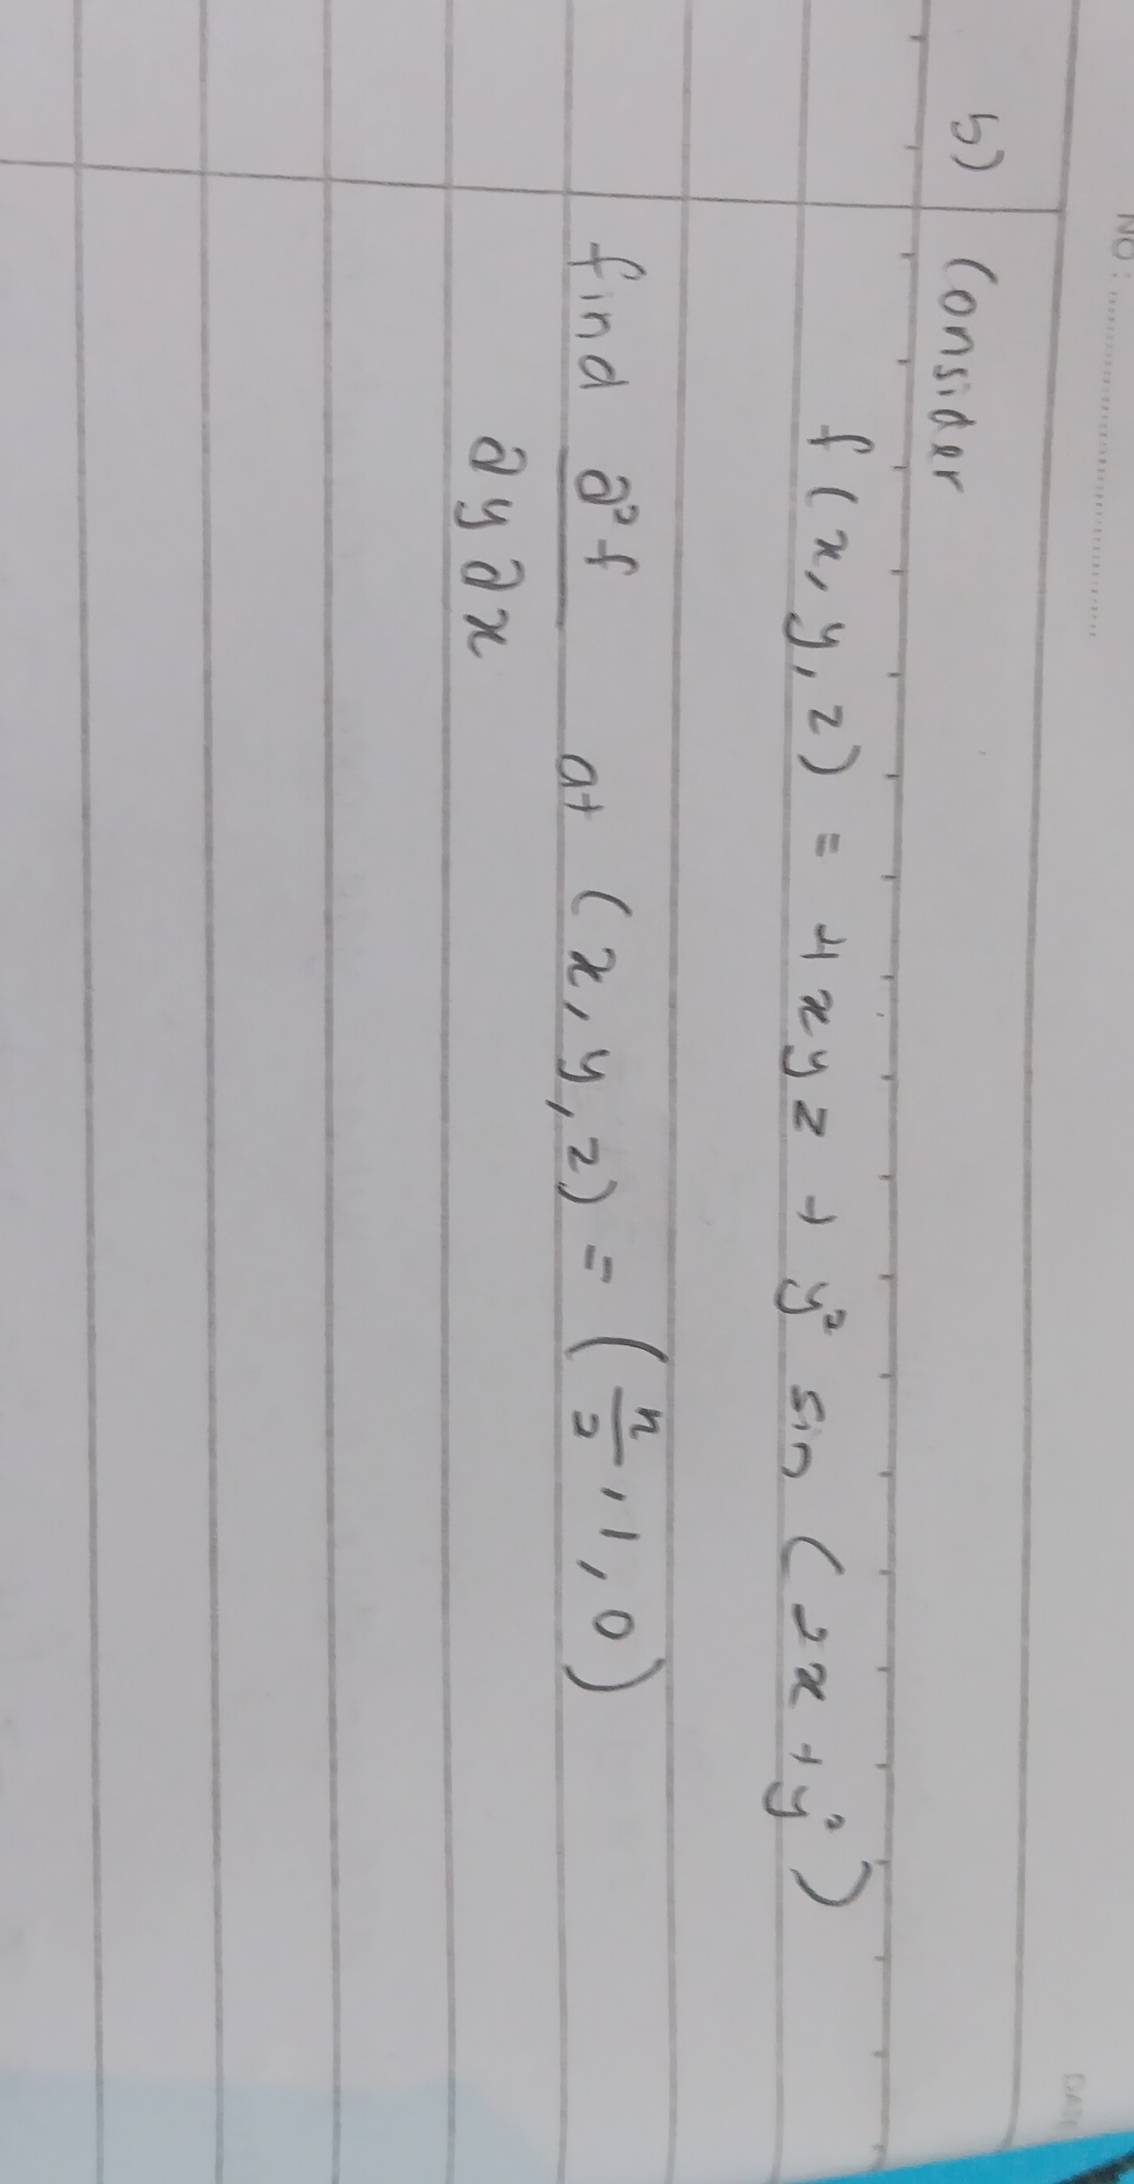 NO:
DATE
b) Consider
f(x, y, z) = 4xyz + y² sin (2x + y²)
find ∂²f/∂y∂x at (x, y, z) = (π/2, 1, 0)